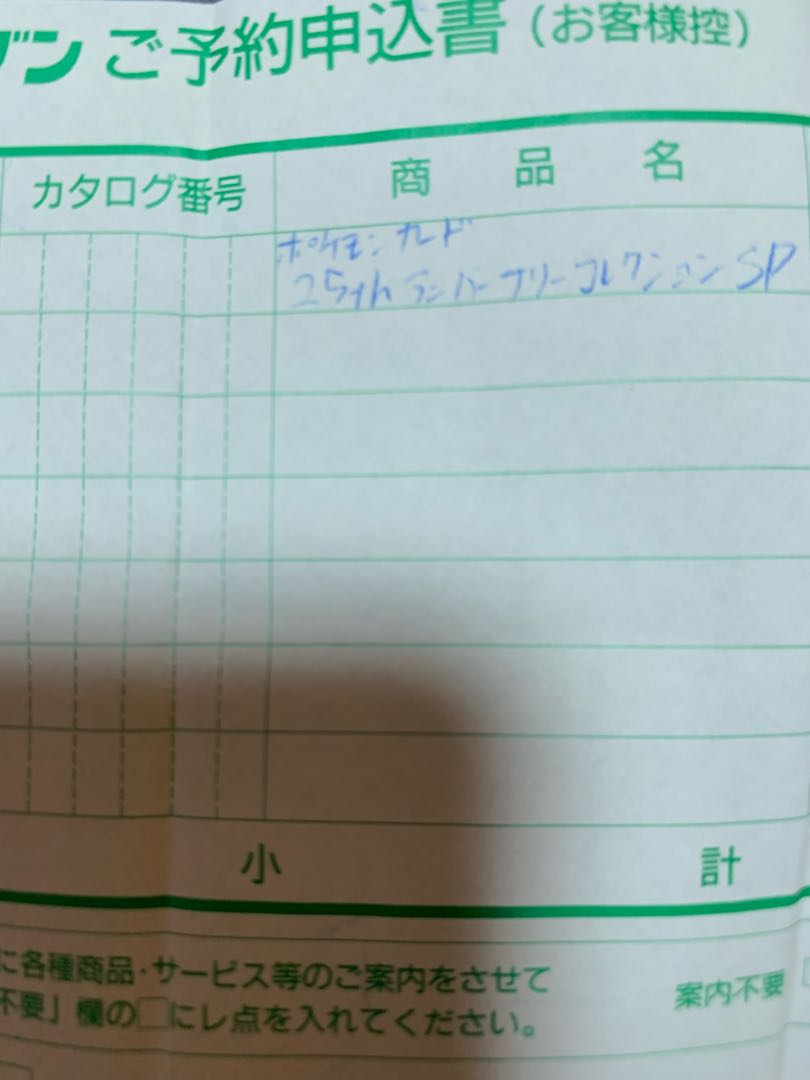 ブン ご予約申込書（お客様控）
カタログ番号 商品名
ポケモンカード
25th アニバーサリーコレクション SP
小計
に各種商品・サービス等のご案内をさせて
不要」欄の□にレ点を入れてください。
案内不要